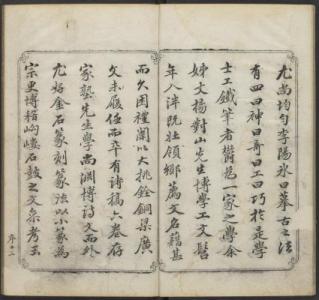 尤尚均勻李陽冰曰摹古之法
有四曰神曰奇曰工曰巧於是學
士工鐵筆者欝為一家之學余
姊丈楊對山先生博學工文髫
年入泮既壯領鄉薦文名藉甚
而久困禮闈以大挑銓銅梁廣
文未履任而卒有詩稿六卷存
家塾先生學尚淵博詩文而外
尤好金石篆刻篆法以小篆為
宗更博稽岣嶁石鼓之文叅考玉
序十二